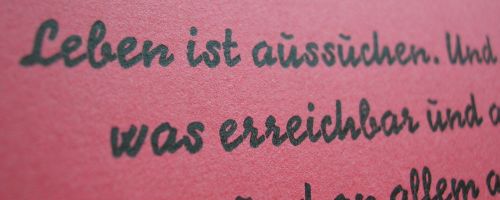 Leben ist aussuchen. Und
was erreichbar und
allem